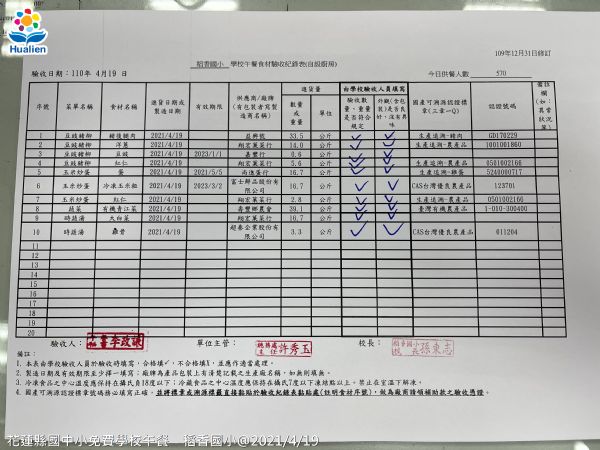 Hualien
109年12月31日修訂
稻香國小 學校午餐食材驗收紀錄表(自設廚房)
驗收日期:110年 4月19 日
今日供餐人數 570
序號 菜單名稱 食材名稱 進貨日期或製造日期 有效期限 供應商/廠牌(有包裝者寫製造商名稱) 進貨量 數量或重量 單位 由學校驗收人員填寫 驗收數量、重量是否符合規定 外觀(含包裝)是否良好,沒有異味 國產可溯源認證標章(三章一Q) 認證號碼 備註欄(如:異常狀況等)
1 豆豉豬柳 豬後腿肉 2021/4/19 益群號 33.5 公斤 生產追溯-豬肉 GD170229
2 豆豉豬柳 洋蔥 2021/4/19 翔宏蔬菜行 14.0 公斤 生產追溯-農產品 1001001860
3 豆豉豬柳 豆豉 2023/1/1 嘉豐行 0.6 公斤
4 豆豉豬柳 紅仁 2021/4/19 翔宏蔬菜行 5.6 公斤 生產追溯-農產品 0501002166
5 玉米炒蛋 蛋 2021/4/19 2021/5/5 尚進蛋行 16.7 公斤 生產追溯-雞蛋 5240000717
6 玉米炒蛋 冷凍玉米粒 2023/3/2 富士鮮品股份有限公司 16.7 公斤 CAS台灣優良農產品 123701
7 玉米炒蛋 紅仁 2021/4/19 翔宏蔬菜行 2.8 公斤 生產追溯-農產品 0501002166
8 蔬菜 有機青江菜 2021/4/19 壽豐鄉農會 39.1 公斤 臺灣有機農產品 1-010-300400
9 時蔬湯 大白菜 2021/4/19 翔宏蔬菜行 16.7 公斤
10 時蔬湯 2021/4/19 超泰企業股份有限公司 3.3 公斤 CAS台灣優良農產品 011204
11
12
13
14
15
16
17
18
19
20
驗收人: 單位主管: 總務處主任 許秀玉 校長: 稻香國小校長 孫東志
備註:
1. 本表由學校驗收人員於驗收時填寫,合格填✓,不合格填X,並應作適當處理。
2. 製造日期及有效期限至少擇一填寫;廠牌為產品包裝上有清楚記載之生產廠名稱,如無則填無。
3. 冷凍食品之中心溫度應保持在攝氏負18度以下;冷藏食品之中心溫度應保持在攝氏7度以下凍結點以上,禁止在室溫下解凍。
4. 國產可溯源認證標章號碼務必填寫正確,並將標章或溯源標籤直接黏貼於紀錄表黏貼處(註明食材序號),做為廠商請領補助款之驗收憑證。
花蓮縣國中小免費學校午餐 稻香國小@2021/4/19